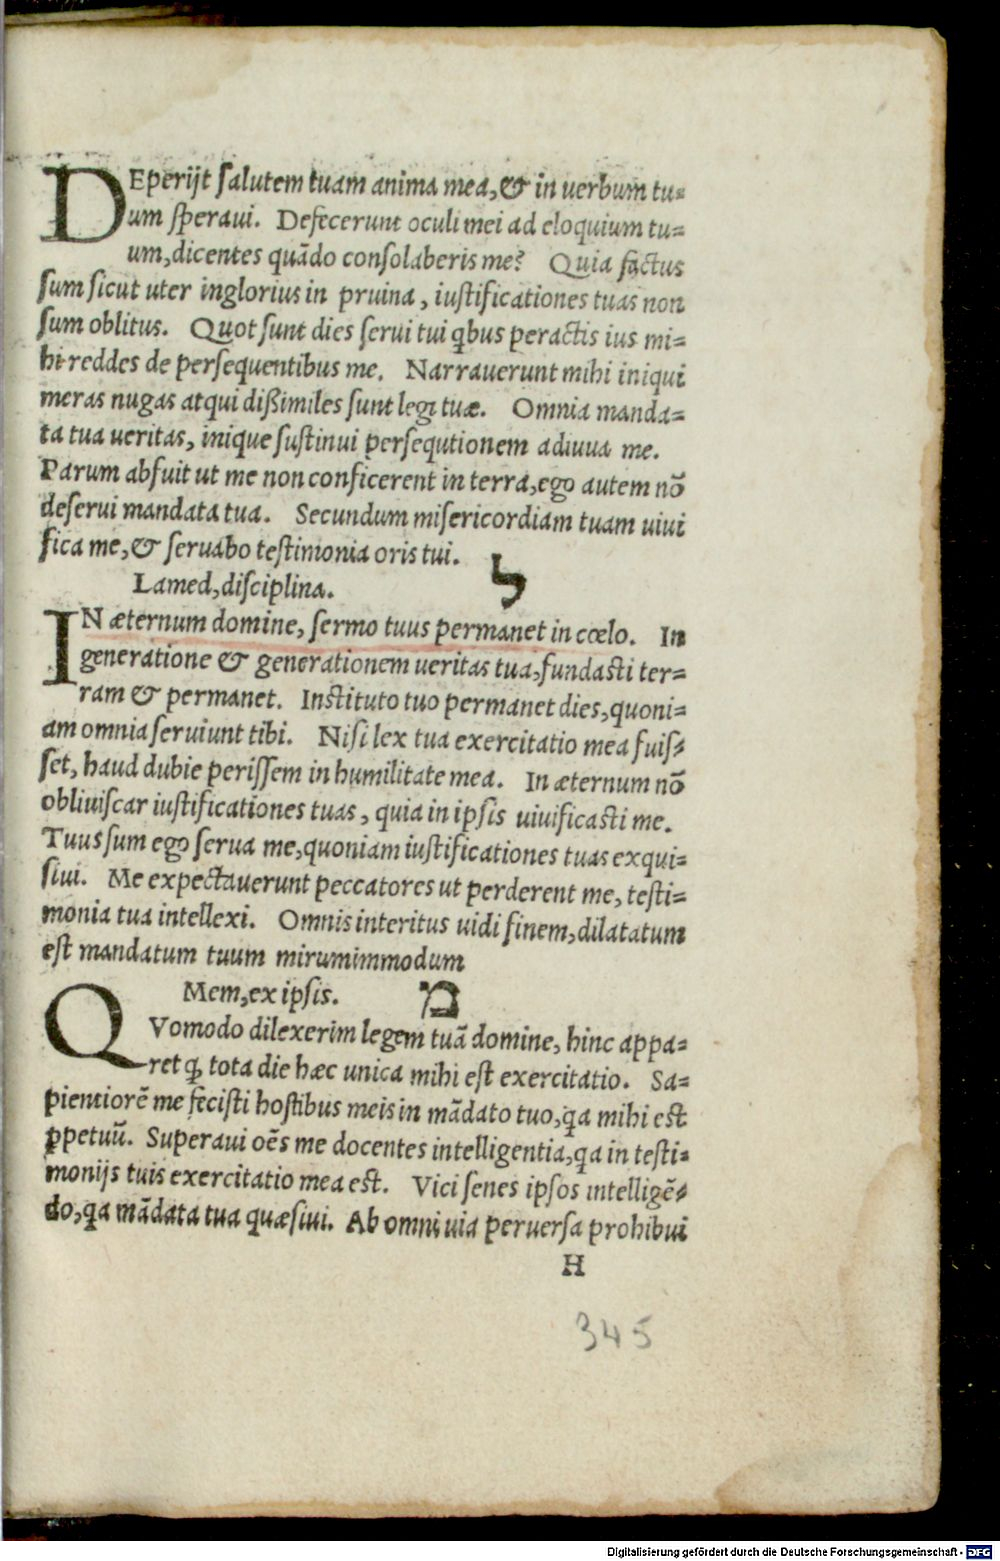 DEperijt salutem tuam anima mea, & in uerbum tu-
um speraui. Defecerunt oculi mei ad eloquium tu-
um, dicentes quādo consolaberis me? Quia factus
sum sicut uter inglorius in pruina, iustificationes tuas non
sum oblitus. Quot sunt dies serui tui qbus peractis ius mi-
hi reddes de persequentibus me. Narrauerunt mihi iniqui
meras nugas atqui dißimiles sunt legi tuæ. Omnia manda-
ta tua ueritas, inique sustinui persequtionem adiuua me.
Parum abfuit ut me non conficerent in terra, ego autem nō
deserui mandata tua. Secundum misericordiam tuam uiui
fica me, & seruabo testimonia oris tui.
Lamed, disciplina. ל
IN æternum domine, sermo tuus permanet in cœlo. In
generatione & generationem ueritas tua, fundasti ter-
ram & permanet. Instituto tuo permanet dies, quoni-
am omnia seruiunt tibi. Nisi lex tua exercitatio mea fuis-
set, haud dubie perissem in humilitate mea. In æternum nō
obliuiscar iustificationes tuas, quia in ipsis uiuificasti me.
Tuus sum ego serua me, quoniam iustificationes tuas exqui-
siui. Me expectauerunt peccatores ut perderent me, testi-
monia tua intellexi. Omnis interitus uidi finem, dilatatum
est mandatum tuum mirumimmodum
Mem, ex ipsis. מ
QVomodo dilexerim legem tuā domine, hinc appa-
ret ꝙ tota die hæc unica mihi est exercitatio. Sa-
pientiorē me fecisti hostibus meis in mādato tuo, qa mihi est
ꝑpetuū. Superaui oēs me docentes intelligentia, qa in testi-
monijs tuis exercitatio mea est. Vici senes ipsos intelligē-
do, qa mādata tua quæsiui. Ab omni uia peruersa prohibui
H
345
Digitalisierung gefördert durch die Deutsche Forschungsgemeinschaft - DFG